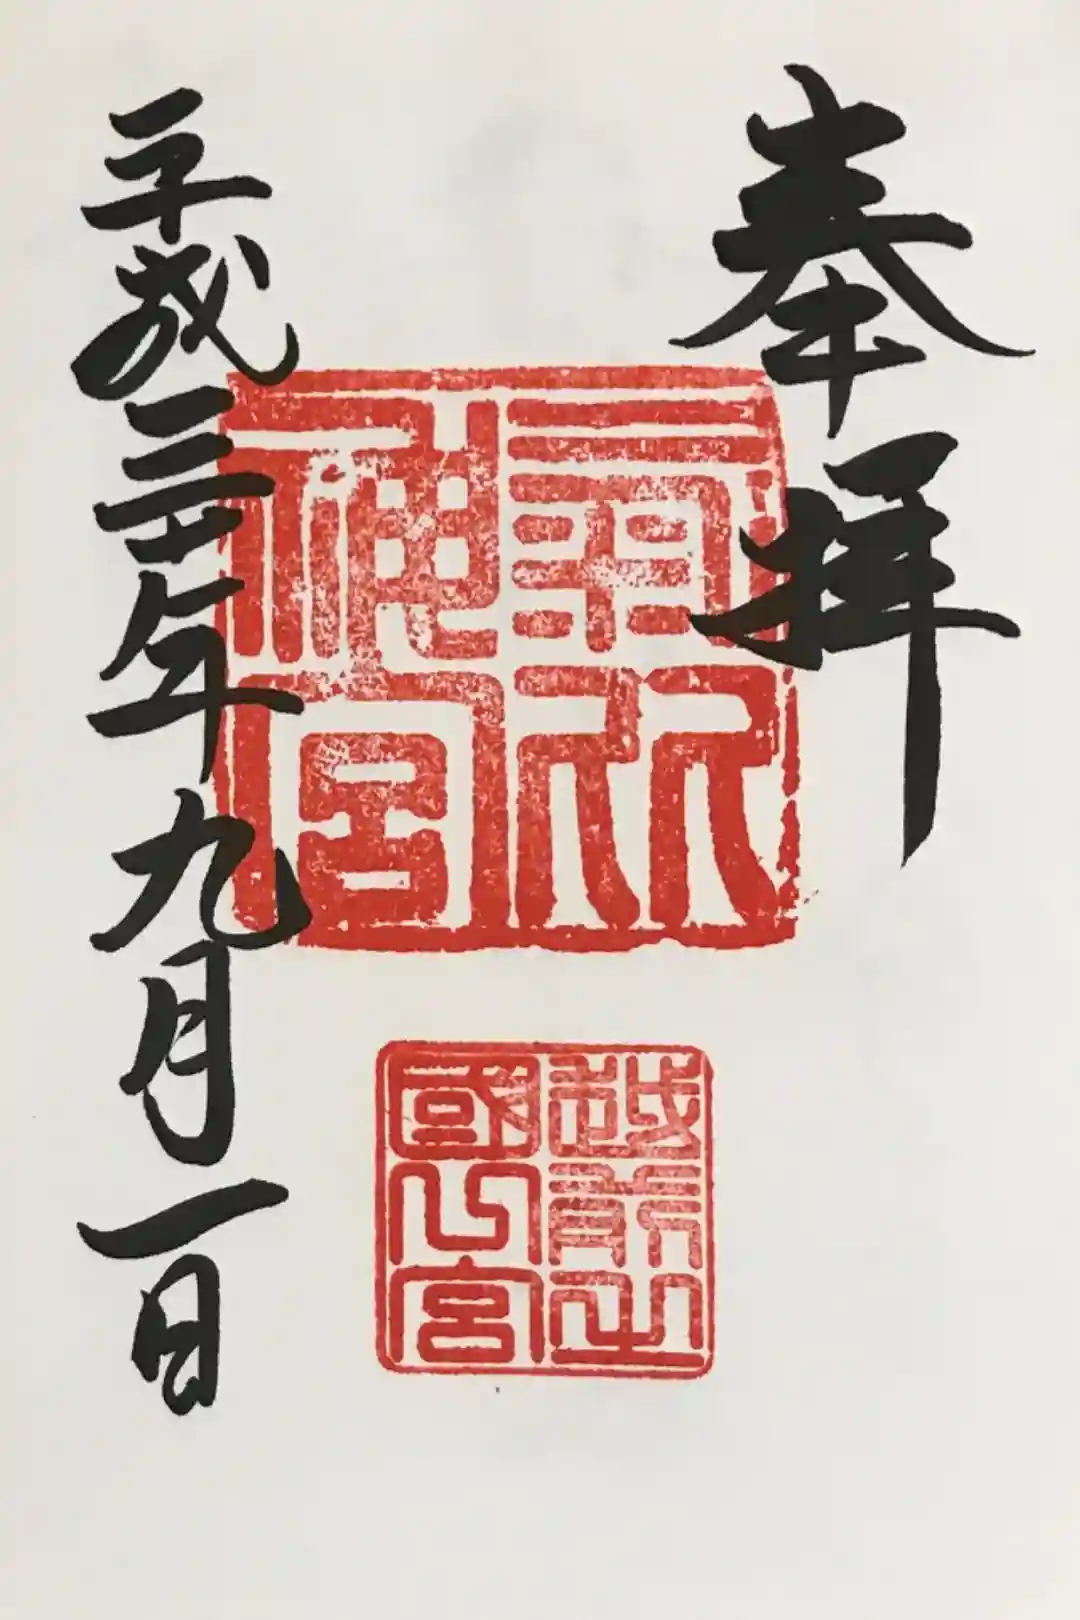 奉拝
氣比神宮
越前之
國一宮
平成三十年九月一日